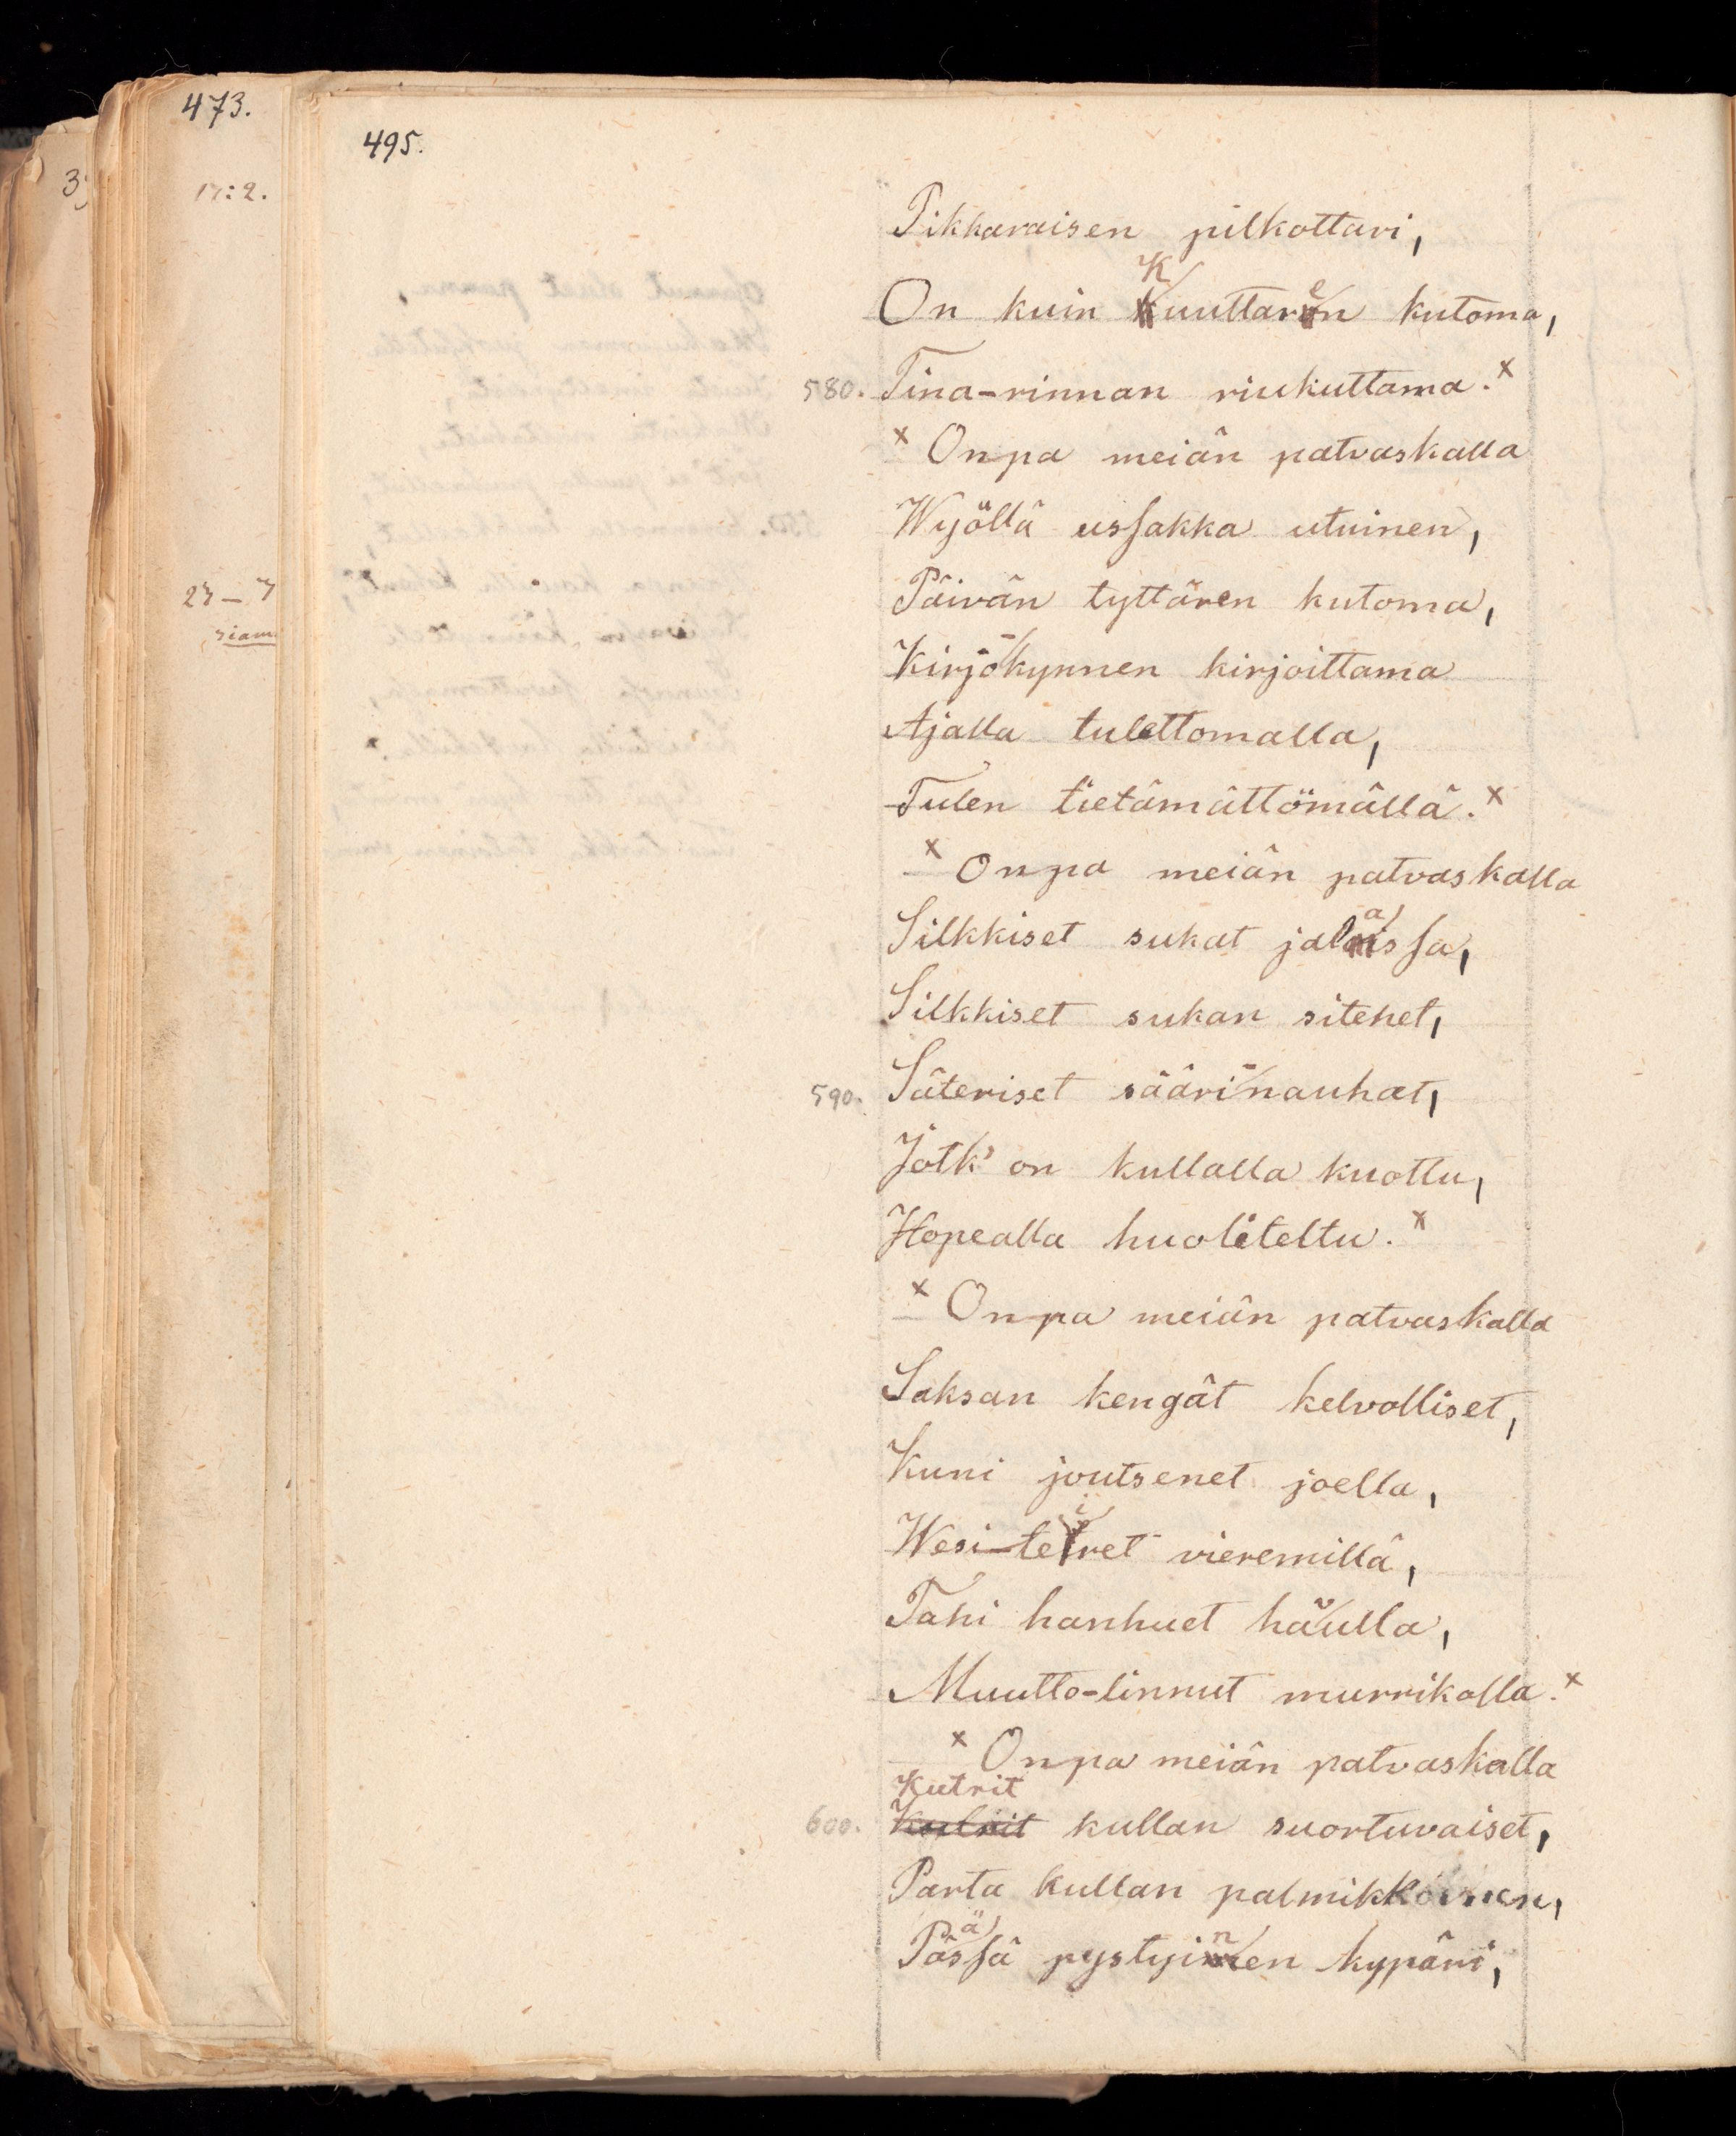 473.
495.
17:2.
Pikkaraisen pilkottavi,
On kuin Kuuttaren kutoma,
580. Tina-rinnan riukuttama.x
x Onpa meiän patvaskalla
Wyöllä ussakka utuinen,
Päivän tyttären kutoma,
23-7
Kirjo-kynnen kirjoittama
Ajalla tulettomalla,
Tulen tietämättömällä.x
x Onpa meiän patvaskalla
Silkkiset sukat jalassa,
Silkkiset sukan sitehet,
590. Säteriset sääri-nauhat,
Jotk' on kullalla kuottu,
Hopealla huoliteltu.x
x Onpa meiän patvaskalla
Saksan kengät kelvolliset,
Kuni joutsenet joella,
Wesi-teiret vieremillä,
Tahi hanhuet havulla,
Muutto-linnut murrikolla.x
x Onpa meiän patvaskalla
Kutrit
600. kullan suortuvaiset,
Parta kullan palmikkoinen,
Päässä pystyinen kypäri,